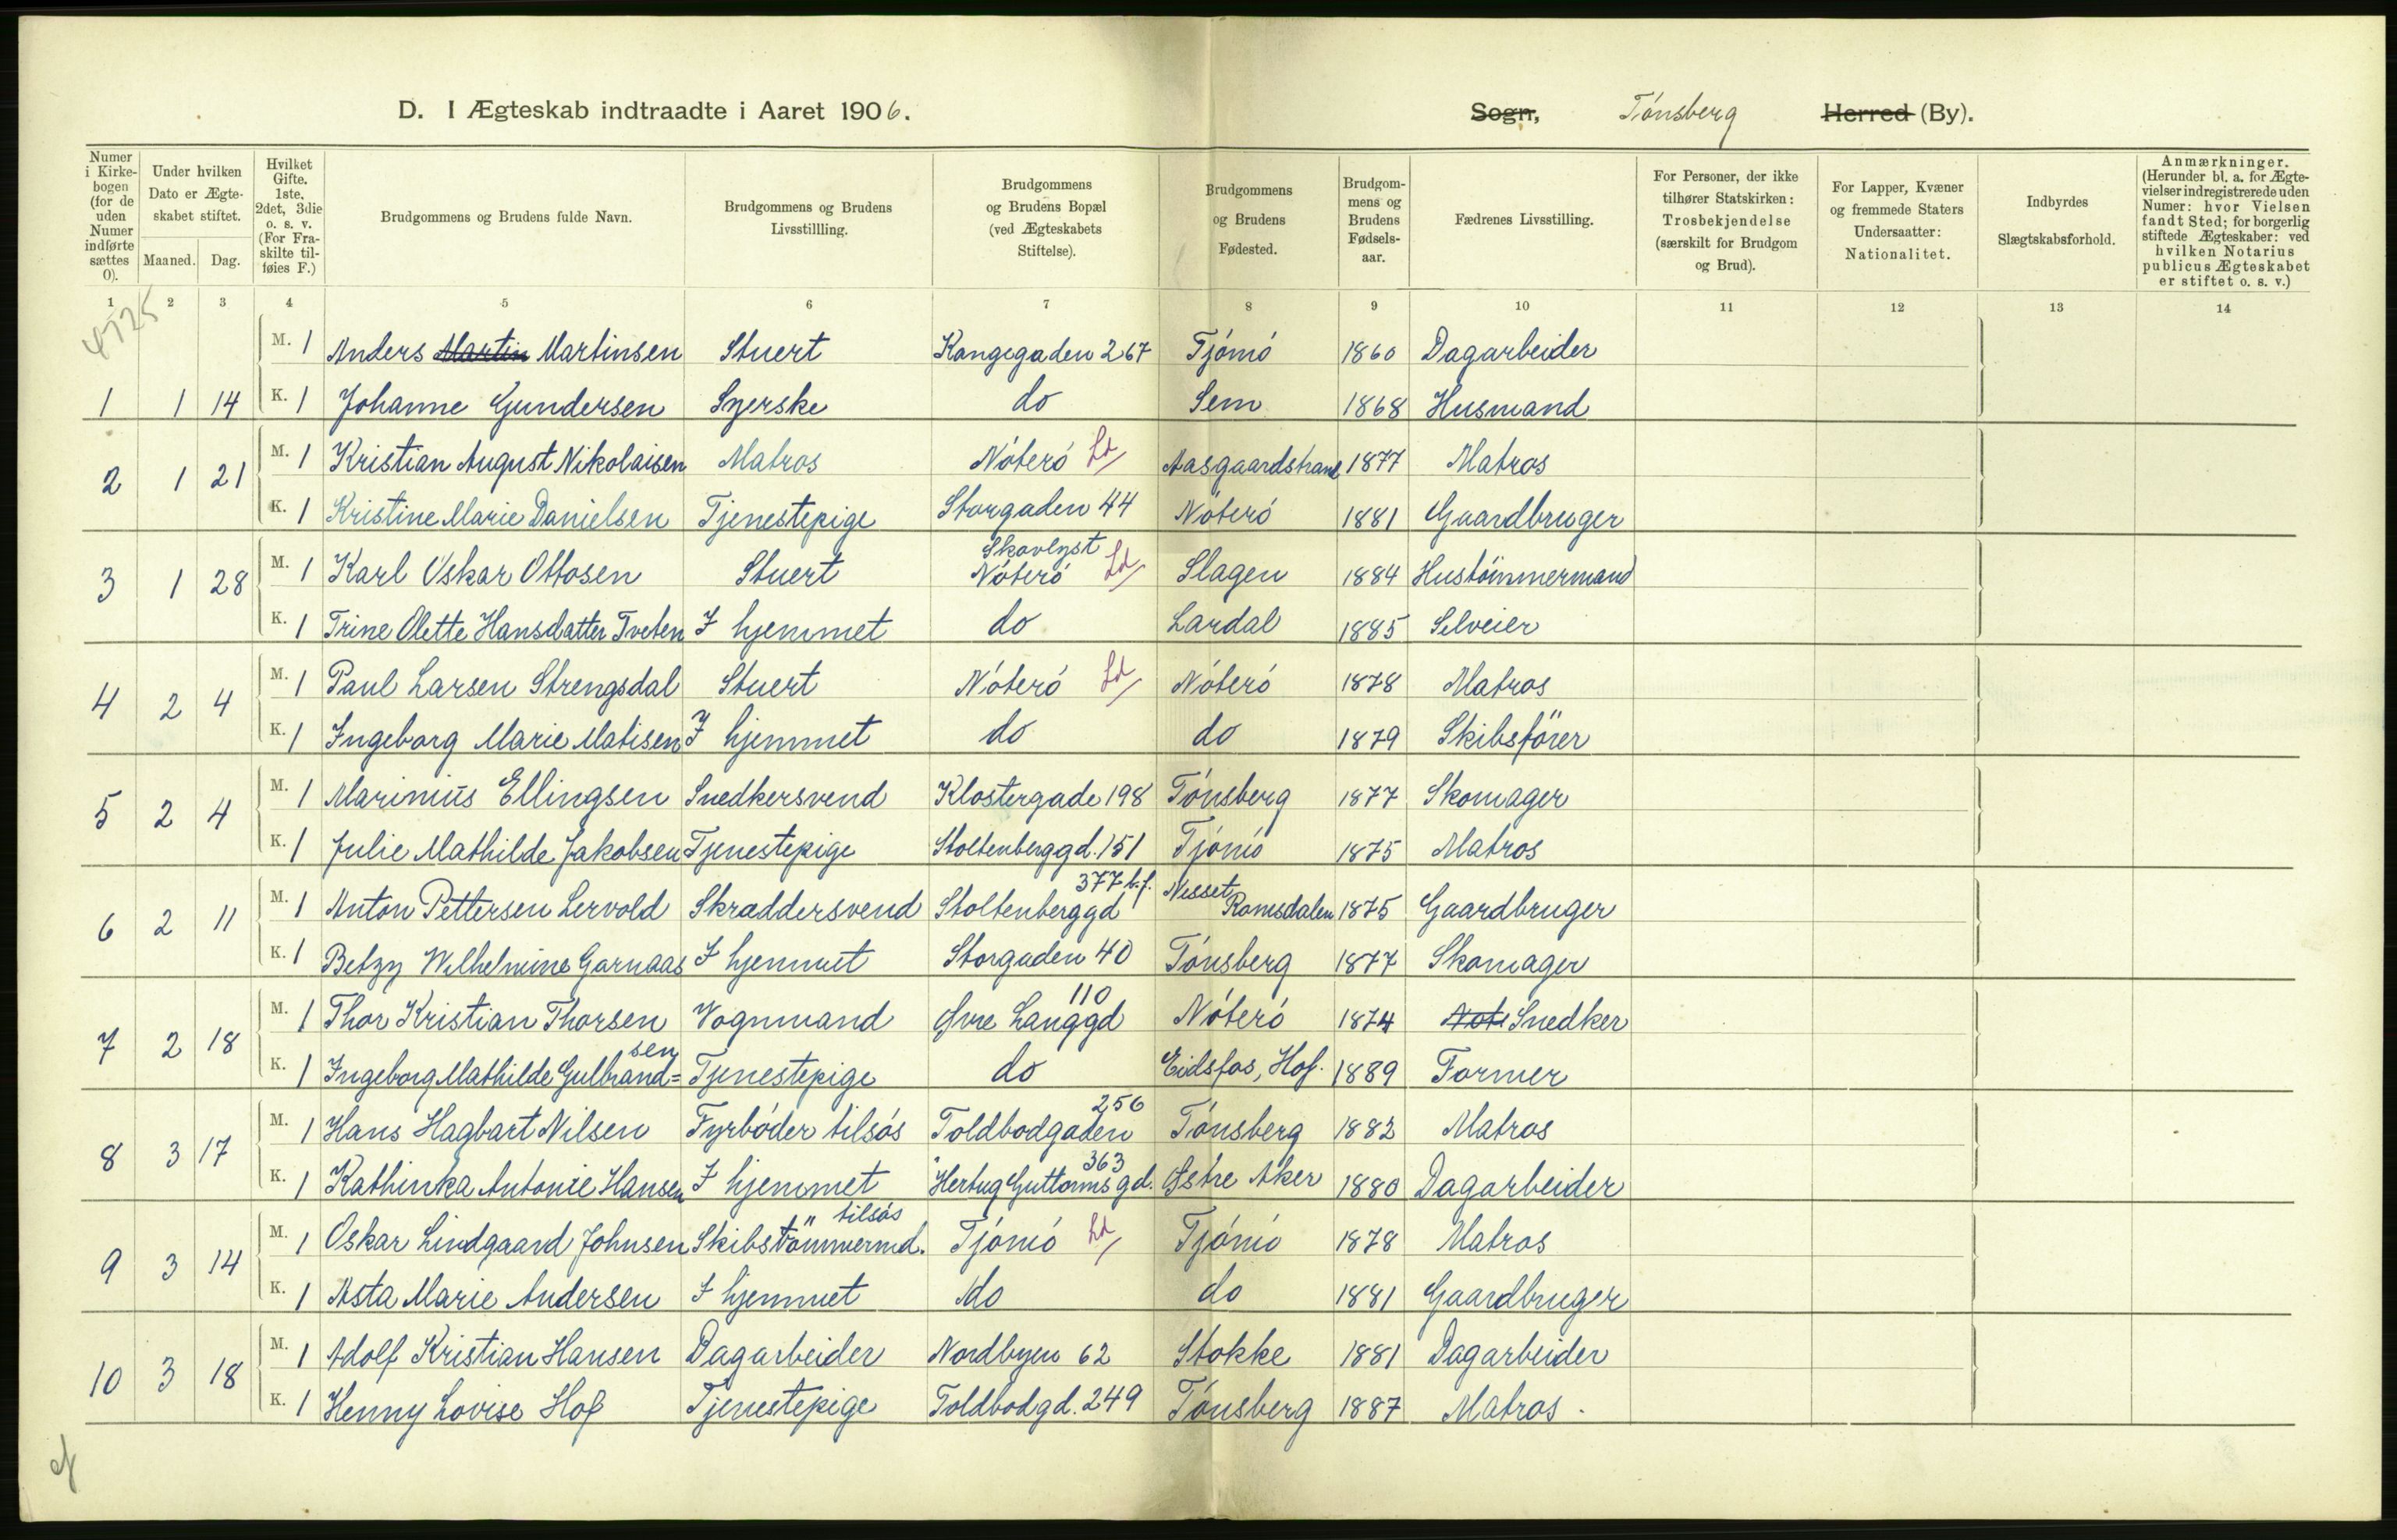 D. I Ægteskab indtraadte i Aaret 1906. Sogn, Tönsberg Herred (By).
Numer i Kirkebogen (for de uden Numer indførte sættes 0). Under hvilken Dato er Ægteskabet stiftet. Maaned. Dag. Hvilket Gifte. 1ste, 2det, 3die o. s. v. (For Fraskilte tilføies F.) Brudgommens og Brudens fulde Navn. Brudgommens og Brudens Livsstillling. Brudgommens og Brudens Bopæl (ved Ægteskabets Stiftelse). Brudgommens og Brudens Fødested. Brudgommens og Brudens Fødselsaar. Fædrenes Livsstilling. For Personer, der ikke tilhører Statskirken: Trosbekjendelse (særskilt for Brudgom og Brud). For Lapper, Kvæner og fremmede Staters Undersaatter: Nationalitet. Indbyrdes Slægtskabsforhold. Anmærkninger. (Herunder bl. a. for Ægtevielser indregistrerede uden Numer: hvor Vielsen fandt Sted; for borgerlig stiftede Ægteskaber: ved hvilken Notarius publicus Ægteskabet er stiftet o. s. v.)
1 2 3 4 5 6 7 8 9 10 11 12 13 14
4725
M. 1 Anders Martin Martinsen Stuert Kongegaden 267 Tjömö 1860 Dagarbeider
1 1 14 K. 1 Johanne Gundersen Syerske do Sem 1868 Husmand
M. 1 Kristian August Nikolaisen Matros Nöterö Ld Aasgaardstrand 1877 Matros
2 1 21 K. 1 Kristine Marie Danielsen Tjenestepige Storgaden 44 Nöterö 1881 Gaardbruger
M. 1 Karl Oskar Ottosen Stuert Skovlyst Nöterö Ld Slagen 1884 Hustömmermand
3 1 28 K. 1 Trine Olette Hansdatter Tveten I hjemmet do Lardal 1885 Selveier
M. 1 Paul Larsen Strengsdal Stuert Nöterö Ld Nöterö 1878 Matros
4 2 4 K. 1 Ingeborg Marie Matisen I hjemmet do do 1879 Skibsförer
M. 1 Marinius Ellingsen Snedkersvend Klostergade 198 Tönsberg 1877 Skomager
5 2 4 K. 1 Julie Mathilde Jakobsen Tjenestepige Stoltenberggd. 151 Tjömö 1875 Matros
M. 1 Anton Pettersen Lervold Skræddersvend Stoltenberggd 377 b.f. Nesset Romsdalen 1875 Gaardbruger
6 2 11 K. 1 Betzy Wilhelmine Garnaas I hjemmet Storgaden 40 Tönsberg 1877 Skomager
M. 1 Thor Kristian Thorsen Vognmand Øvre Langgd 110 Nöterö 1874 Snedker
7 2 18 K. 1 Ingeborg Mathilde Gulbrand=sen Tjenestepige do Eidsfos, Hof. 1889 Former
M. 1 Hans Hagbart Nilsen Fyrböder tilsös Toldbodgaden 256 Tönsberg 1882 Matros
8 3 17 K. 1 Kathinka Antonie Hansen I hjemmet Hertug Guttormsgd. 363 Østre Aker 1880 Dagarbeider
M. 1 Oskar Lindgaard Johnsen Skibstömmermd. tilsös Tjömö Ld Tjömö 1878 Matros
9 3 14 K. 1 Asta Marie Andersen I hjemmet do do 1881 Gaardbruger
M. 1 Adolf Kristian Hansen Dagarbeider Nordbyen 62 Stokke 1881 Dagarbeider
10 3 18 K. 1 Henny Lovise Hof Tjenestepige Toldbodgd. 249 Tönsberg 1887 Matros.